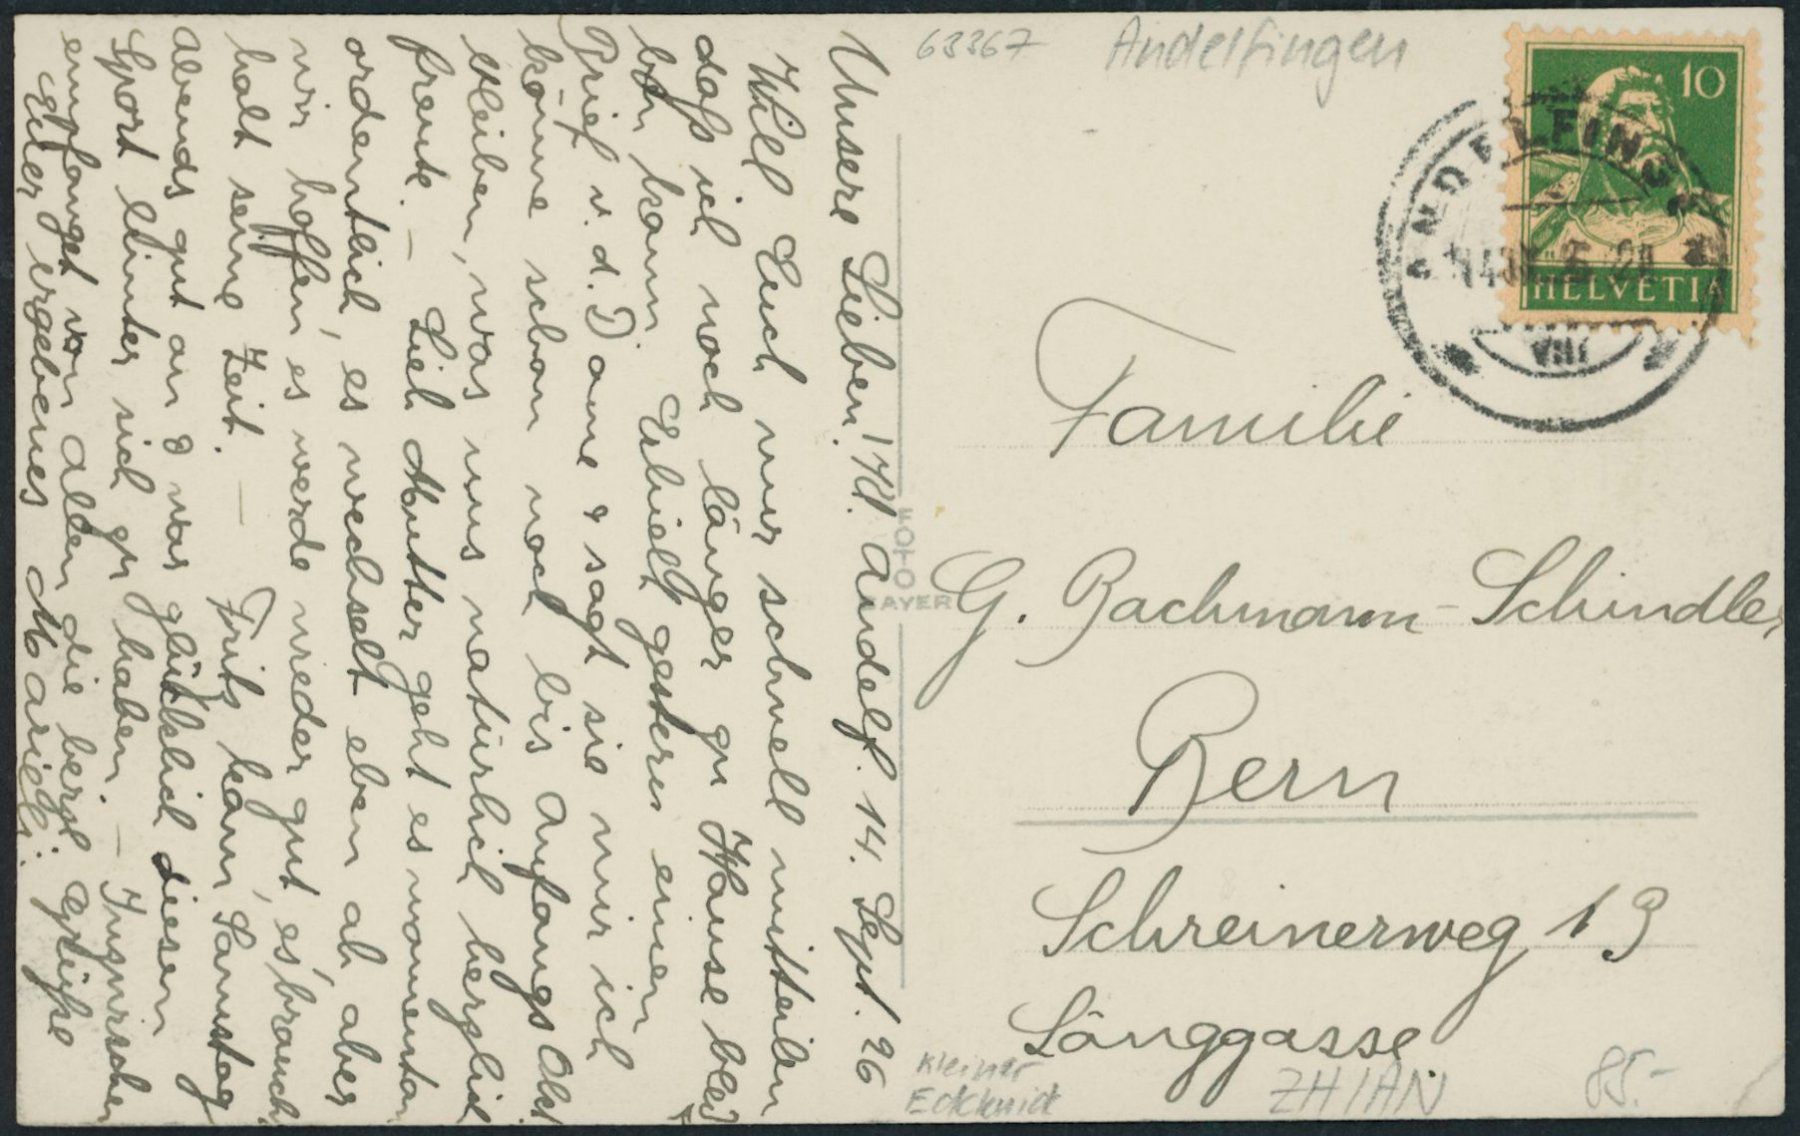 Unsere Lieben! Kl. Andelf. 14. Sept. 26
Will Euch nur schnell mitteilen
daß ich noch länger zu Hause blei
ben kann. Erhielt gestern einen
Brief v. d. Dame & sagt sie mir ich
könne schon noch bis Anfangs Okt
bleiben, was uns natürlich herzlich
freute. – Lieb Mutter geht es momentan
ordentlich, es wechselt eben ab, aber
wir hoffen, es werde wieder gut, es brauch
halt seine Zeit. – Fritz kam Samstag
Abends gut an & war glücklich diesen
Sport hinter sich zu haben. – Inzwischen
empfanget von allen die herzl. Grüße
Euer ergebenes Marieli.
63367
Andelfingen
10
HELVETIA
ANDELFINGEN
VIII
FOTO
Familie
G. Bachmann-Schindler
Bern
Schreinerweg 19
Länggasse
Kleiner
Eckknick
ZH/AN
85.-